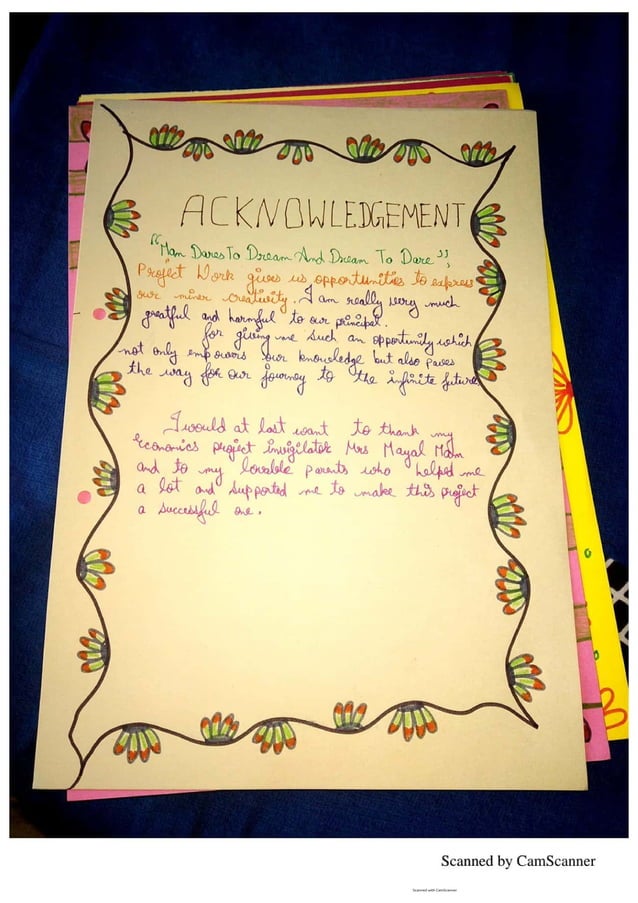 ACKNOWLEDGEMENT
"Man Dares To Dream And Dream To Dare",
Project Work gives us opportunities to express
our miner creativity. I am really very much
greatful and harmful to our principal.
for giving me such an opportunity which
not only empowers our knowledge but also paves
the way for our journey to the infinite future
I would at last want to thank my
Economics project invigilator Mrs Mayal Mam
and to my lovable parents who helped me
a lot and supported me to make this project
a successful one.
Scanned by CamScanner
Scanned with CamScanner